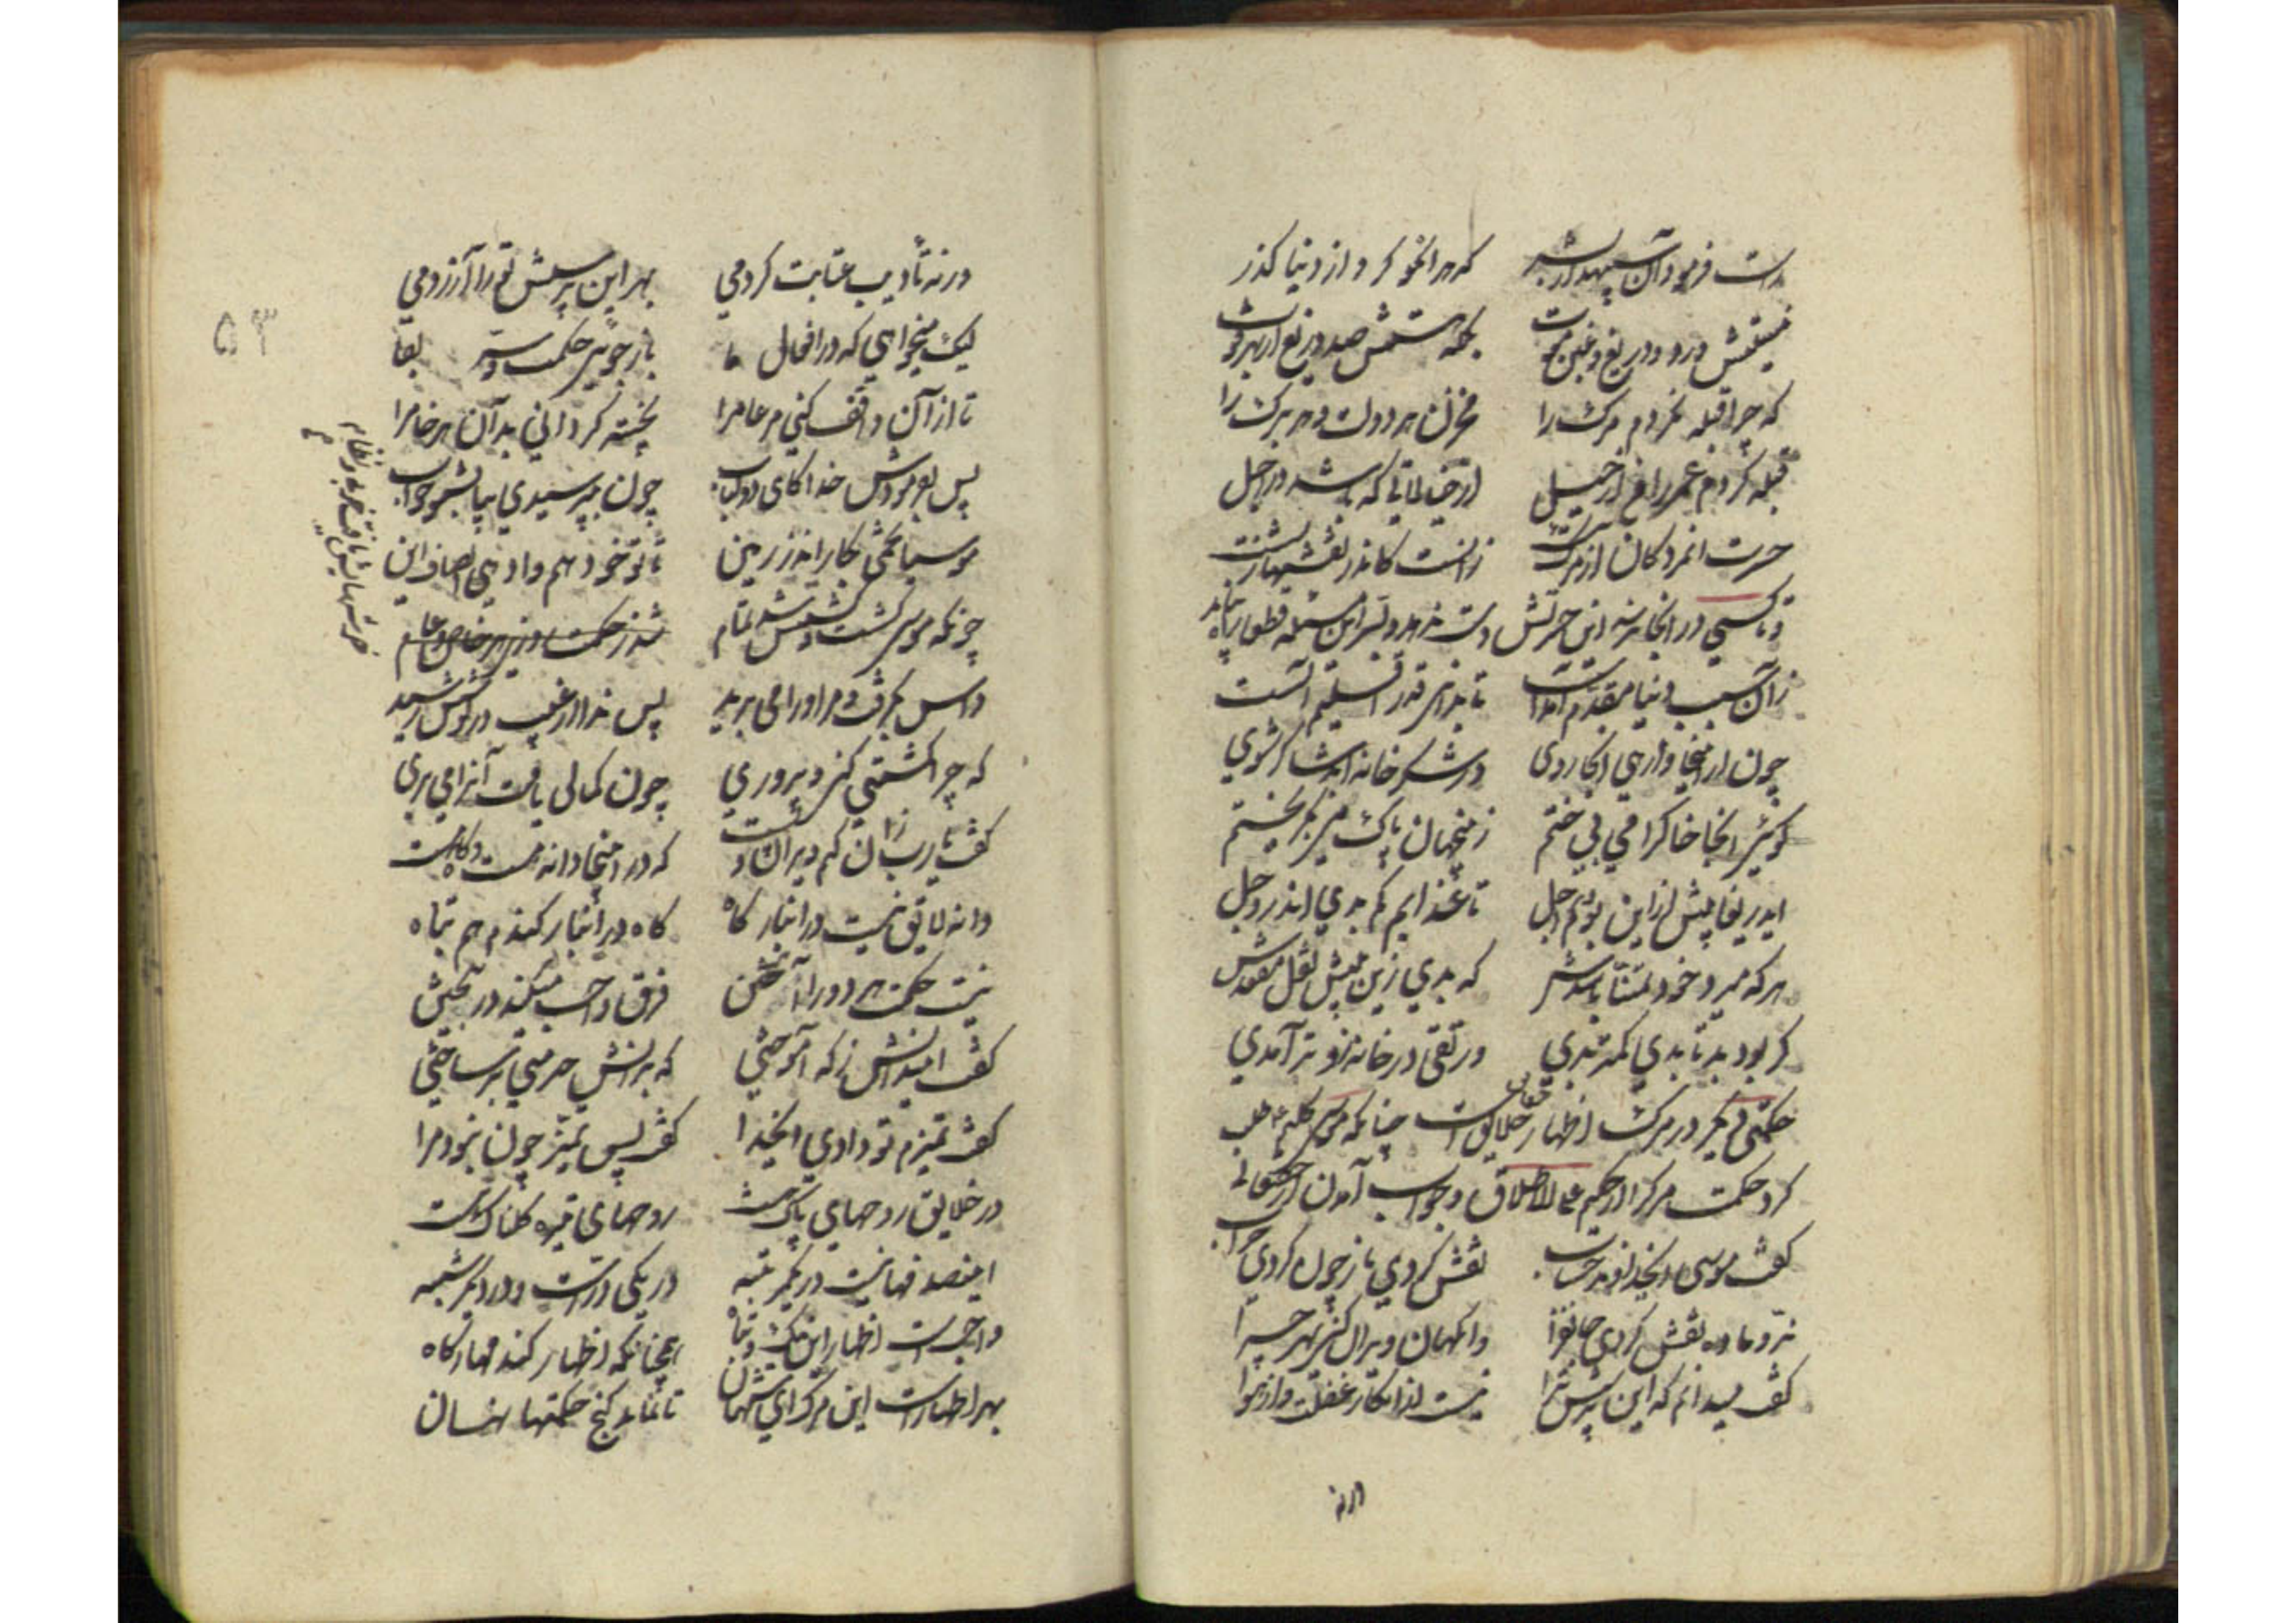 راست فرمود آن سپهدار بشر که هر آنکو کرد از دنیا گذر
نیستش درد و دریغ و غبن موت بلکه هستش صد دریغ از بهر فوت
که چرا قبله نکردم مرگ را مخزن هر دولت و هر برگ را
قبله کردم عمر را من از خیالاتی که شد در اجل
حسرت آن مردگان از مرگ نیست زانست کاندر نقشها
تا کسی در اینجا دست ندهد و
زان سبب دنیا مقدم آمدست تا بدانی قدر اقلیم الست
چون از اینجا وارهی آنجا روی در شکرخانه ابد شاکر شوی
گویی آنجا خاک را می بیختم زین جهان پاک می بگریختم
ای دریغا پیش از این بودم اجل تا عذابم کم بدی اندر وجل
هر که میرد خود تمنا باشدش که بدی زین پیش نقل مقصدش
گر بود بد تا بدی کمتر بدی ور تقی در خانه زوتر آمدی
حکمتی دیگر در مرگ اظهار خلایق است چنانکه موسی کلیم طلب
کرد حکمت مرگ را از حکیم علی الاطلاق و جواب آمدن از حقتعالی
گفت موسی ای خداوند حساب نقش کردی باز چون کردی خراب
نر و ماده نقش کردی جانفزا وانگهان ویران کنی بهر چرا
گفت میدانم که این پرسش ترا نیست از انکار و غفلت وز هوا
ورنه
ورنه تأدیب و عتابت کردمی بهر این پرسش تو را آزردمی
لیک میخواهی که در افعال ما باز جویی حکمت و سر بقا
تا از آن واقف کنی مر عام را پخته گردانی بدان هر خام را
پس بفرمودش خدا کای ذو لباب چون بپرسیدی بیا بشنو جواب
موسیا تخمی بکار اندر زمین تا تو خود هم وا دهی انصاف این
چونکه موسی کشت و کشتش شد تمام
خوشهایش یافت خوبی و نظام
داس بگرفت و مر او را می برید پس ندا از غیب در گوشش رسید
که چرا کشتی کنی و پروری چون کمالی یافت آنرا می بری
گفت یا رب زان کنم ویران و پست که در اینجا دانه هست و کاه هست
دانه لایق نیست در انبار کاه کاه در انبار گندم هم تباه
نیست حکمت هر دو را آمیختن فرق واجب میکند در بیختن
گفت این دانش ز که آموختی که بدانش خرمنی بر ساختی
گفت تمییزم تو دادی ای خدا گفت پس تمییز چون نبود مرا
در خلایق روحهای پاک هست روحهای تیره گلناک هست
این صدفها نیست در یک مرتبه در یکی درست و در دیگر شبه
واجبست اظهار این نیک و تباه همچنانکه اظهار گندمها ز کاه
بهر اظهارست این تا نماند گنج حکمتها نهان
۵۳